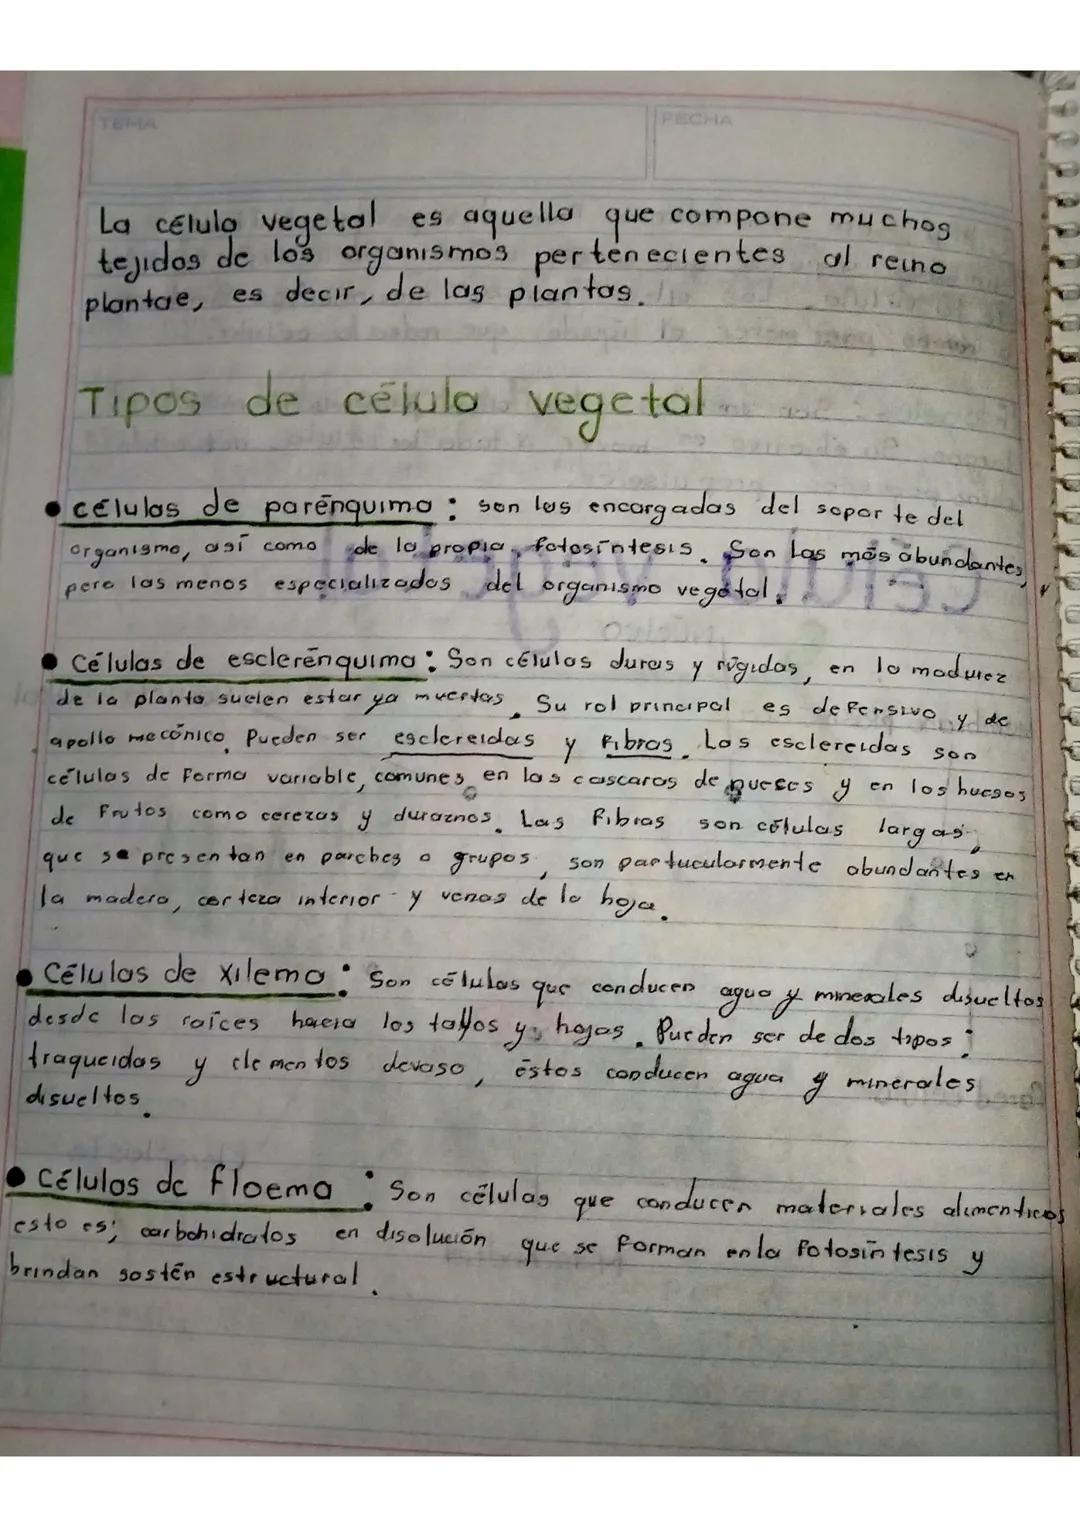 TEMA
FECHA
La célula vegetal es aquella que compone muchos
tejidos de los organismos pertenecientes al reino
plantae, es decir, de las plantas.
Tipos de célula vegetal
• células de parénquima : son las encargadas del soporte del
organismo, así como de la propia fotosíntesis. Son las más abundantes,
pero las menos especializadas del organismo vegetal.
• Células de esclerénquima : Son células duras y rígidas, en la madurez
de la planta suelen estar ya muertas. Su rol principal es defensivo y de
apollo mecánico. Pueden ser esclereidas y fibras. Las esclereidas son
células de forma variable, comunes en las cascaras de nueces y en los huesos
de frutos como cerezas y duraznos. Las fibras son células largas,
que se presentan en parches o grupos, son partucularmente abundantes en
la madera, corteza interior y venas de la hoja.
• Células de xilema : Son células que conducen agua y minerales disueltos
desde las raíces hacia los tallos y hojas. Pueden ser de dos tipos :
traqueidas y elementos devaso, éstos conducen agua y minerales
disueltos.
• Células de floema : Son células que conducen materiales alimenticios
esto es; carbohidratos en disolución que se forman en la fotosíntesis y
brindan sostén estructural.